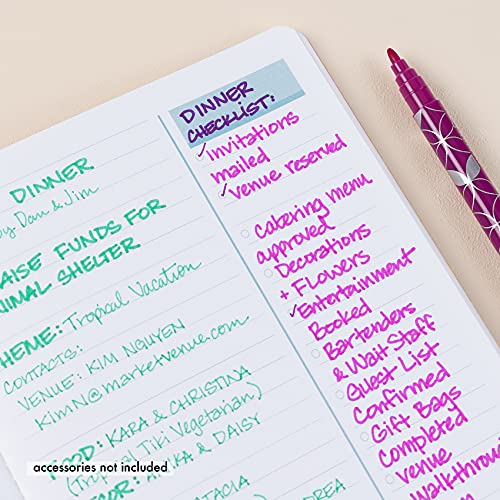 DINNER
by Dan & Jim
RAISE FUNDS FOR
ANIMAL SHELTER
THEME: Tropical Vacation
CONTACTS:
VENUE: KIM NGUYEN
KimN@marketvenue.com
FOOD: KARA & CHRISTINA
(Tropical Tiki Vegetarian)
& DAISY
DINNER
CHECKLIST:
✓invitations
mailed
✓venue reserved
catering menu
approved
Decorations
+ Flowers
✓Entertainment
Booked
Bartenders
& Wait Staff
Guest List
Confirmed
Gift Bags
Completed
venue
walkthrough
accessories not included